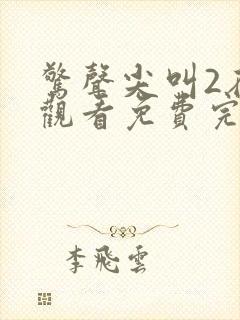 驚聲尖叫2
觀看免費完
李飛雲